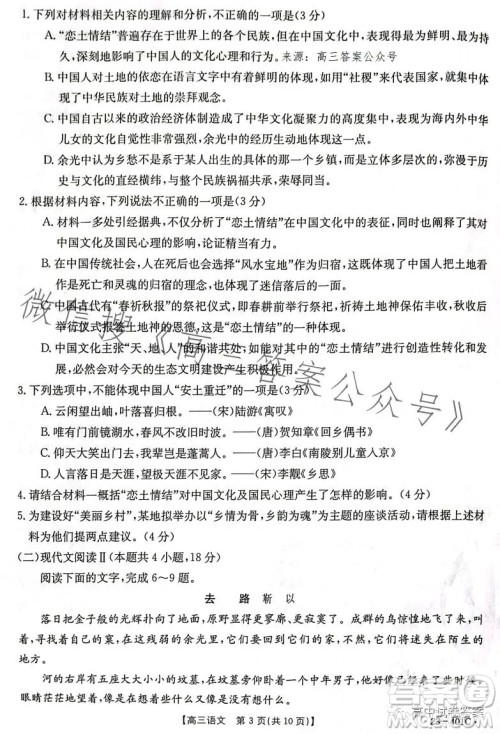 1. 下列对材料相关内容的理解和分析,不正确的一项是(3分)
A.“恋土情结”普遍存在于世界上的各个民族,但在中国文化中,表现得最为鲜明、最为持久,深刻地影响了中国人的文化心理和行为。来源:高三答案公众号
B. 中国人对土地的依恋在语言文字中有着鲜明的体现,如用“社稷”来代表国家,就体现了中华民族对土地的崇拜观念。
C. 中国自古以来的政治经济结构成为中华文化凝聚力的高度体现,影响深远,对中华儿女的文化自觉性非常强烈,安土重迁的传统便是这一体现。
D. 余光中认为乡愁不等于同乡会,乡愁是一种家国情怀,是地理的横坐标与历史及文化的直经横纬,与整个民族祸福共承,荣辱同当。
2. 根据材料内容,下列说法不正确的一项是(3分)
A. 材料一多处引经据典,意在阐明“恋土情结”在中国文化中的表征,同时也阐释了“恋土情结”对中国文化及国民心理产生的影响,论证严谨而深刻。
B. 在中国传统社会,人们在死后往往选择“风水宝地”作为归宿,这也体现了中国人把土地看作是死亡和灵魂的归宿,影响了中国人对土地的依恋之情。
C. 中国古代有“春祈秋报”的祭祀仪式,即春耕前举行祭祀,祈祷土地神保佑丰收,秋后举行献祭仪式报答土地神的恩德,这可谓是“恋土情结”的直接表现。
D. 中国文化主张“天、地、人”的和谐共处,因此人对土地的合理利用也是其中应有之义,这必然会对今天的生态文明建设产生积极作用。
3. 下列选项中,不能体现中国人“安土重迁”的一项是(3分)
A. 云闲望出岫,叶落喜归根。——(宋)陆游《寓叹》
B. 唯有门前镜湖水,春风不改旧时波。——(唐)贺知章《回乡偶书》
C. 仰天大笑出门去,我辈岂是蓬蒿人。——(唐)李白《南陵别儿童入京》
D. 人言落日是天涯,望极天涯不见家。——(宋)李觏《乡思》
4. 请结合材料一概括“恋土情结”对中国文化及国民心理产生了怎样的影响。(4分)
5. 为建设好“美丽乡村”,某地举行以“乡情为骨,乡韵为魂”为主题的座谈活动,请根据上述材料为他们提两点建议。(4分)
(二)现代文阅读Ⅱ(本题共4小题,18分)
阅读下面的文字,完成6~9题。
去 路 靳 以
落日把金子般的光辉朴向了地面,原野显得更广大、更寂寞了。成群的乌鸦惊惶地飞旋着,一面聒噪着,一面像是在寻觅残存的余光里,它们不得不这样将迷失在陌生的地方。
河的右岸有五座大大小小的坟墓,在坟墓之间,
眼睛茫茫地望着
【高三语文 第3页(共10页)】
微信搜《高三答案公众号》